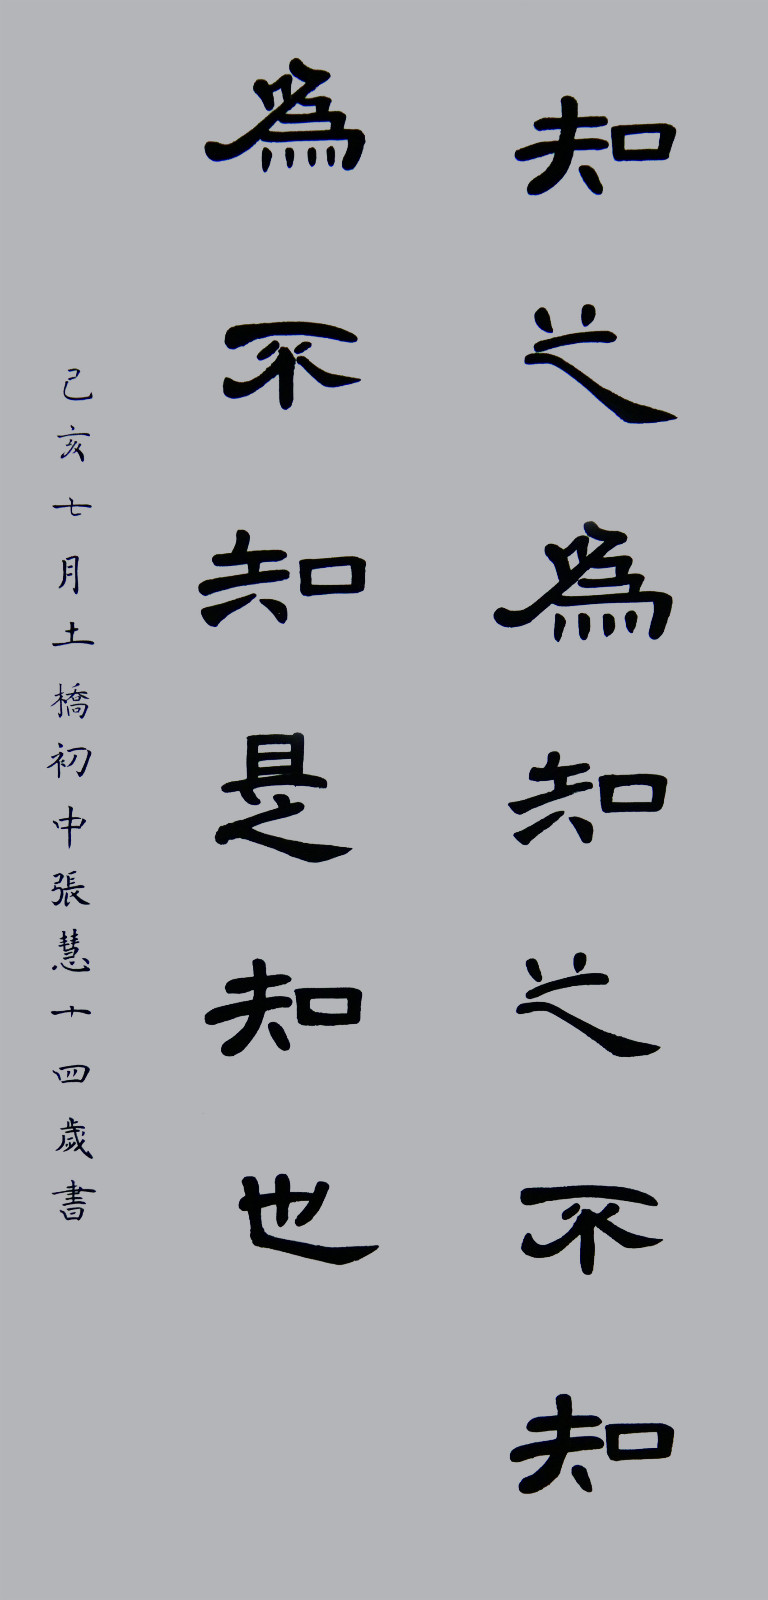 知之爲知之不知
爲不知是知也
己亥七月土橋初中張慧十四歲書